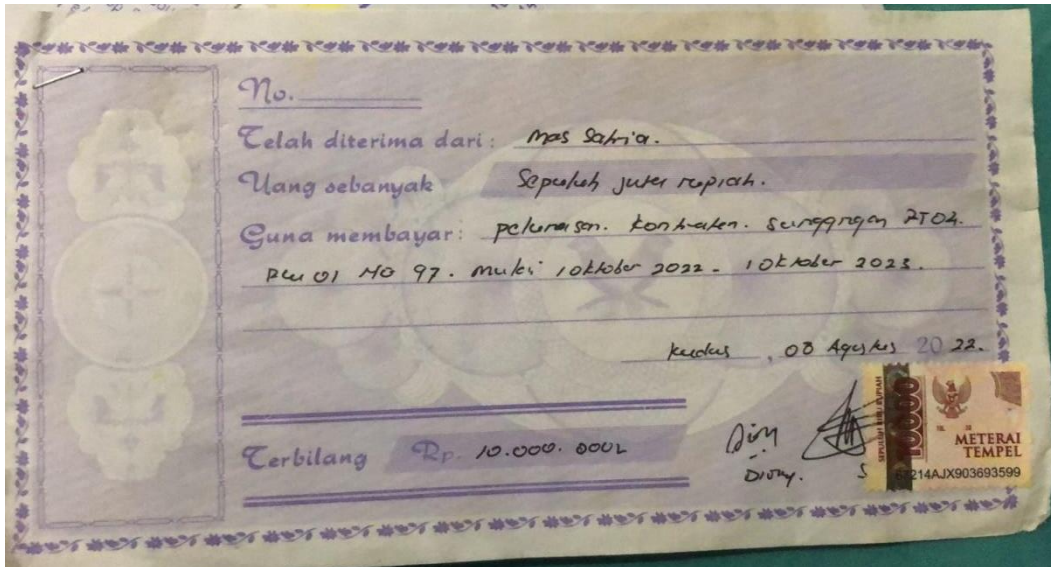 No.
Telah diterima dari: Mas Satria.
Uang sebanyak Sepuluh juta rupiah.
Guna membayar: pelunasan. kontrakan. Sunggingan RT04.
RW 01 NO 97. mulai 1 oktober 2022 - 1 Oktober 2023.
kudus, 08 Agustus 2022.
Terbilang Rp. 10.000.000
Diony.
SEPULUH RIBU RUPIAH
10000
METERAI
TEMPEL
67214AJX903693599